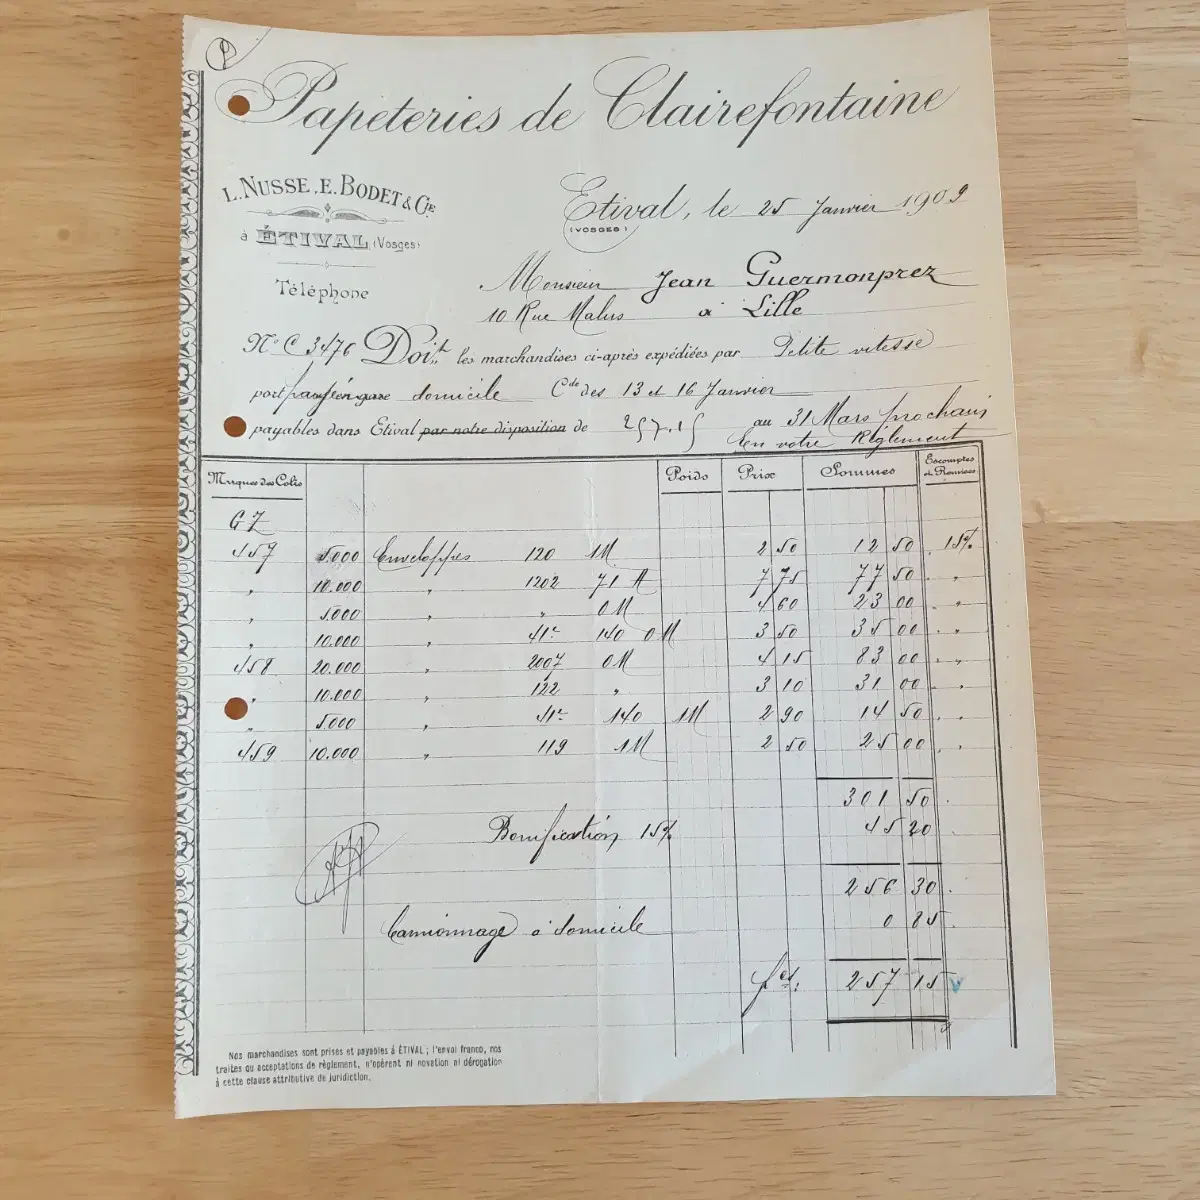 Papeteries de Clairefontaine
L. NUSSE. E. BODET & CIE
à ÉTIVAL (Vosges)
Téléphone
Etival, le 25 Janvier 1909
(VOSGES)
Monsieur Jean Guermonprez
10 Rue Malus à Lille
N° C 3476 Doit les marchandises ci-après expédiées par Petite vitesse
port payé en gare domicile Cde des 13 et 16 Janvier
payables dans Etival par notre disposition de 257.15 au 31 Mars prochain
en votre Règlement
Marques des Colis Poids Prix Sommes Escomptes et Remises
G Z
457 5.000 Enveloppes 120 1M 2 50 12 50 15%
" 10.000 " 1202 71 A 7 75 77 50 "
" 5.000 " " 0M 4 60 23 00 "
" 10.000 " 41c 140 0M 3 50 35 00 "
458 20.000 " 2007 0M 4 15 83 00 "
" 10.000 " 122 " 3 10 31 00 "
" 5.000 " 41c 140 1M 2 90 14 50 "
459 10.000 " 119 1M 2 50 25 00 "
301 50
Bonification 15% 45 20
256 30
Camionnage à domicile 0 85
fcs. 257 15
Nos marchandises sont prises et payables à ÉTIVAL ; l'envoi franco, nos
traites ou acceptations de règlement, n'opèrent ni novation ni dérogation
à cette clause attributive de juridiction.